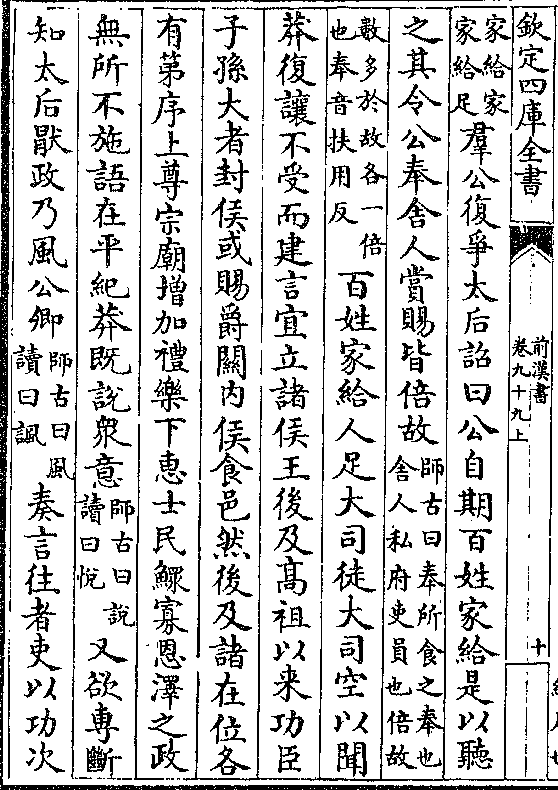 欽定四庫全書
前漢書
卷九十九上
十
家給家
家給足
羣公復爭太后詔曰公自期百姓家給是以聽
之其令公奉舍人賞賜皆倍故
師古曰奉所食之奉也
舍人私府吏員也倍故
數多於故各一倍
也奉音扶用反
百姓家給人足大司徒大司空以聞
莽復讓不受而建言宜立諸侯王後及髙祖以来功臣
子孫大者封侯或賜爵關内侯食邑然後及諸在位各
有第序上尊宗廟增加禮樂下惠士民鰥寡恩澤之政
無所不施語在平紀莽既說衆意
師古曰說
讀曰悅
又欲專斷
知太后厭政乃風公卿
師古曰風
讀曰諷
奏言往者吏以功次